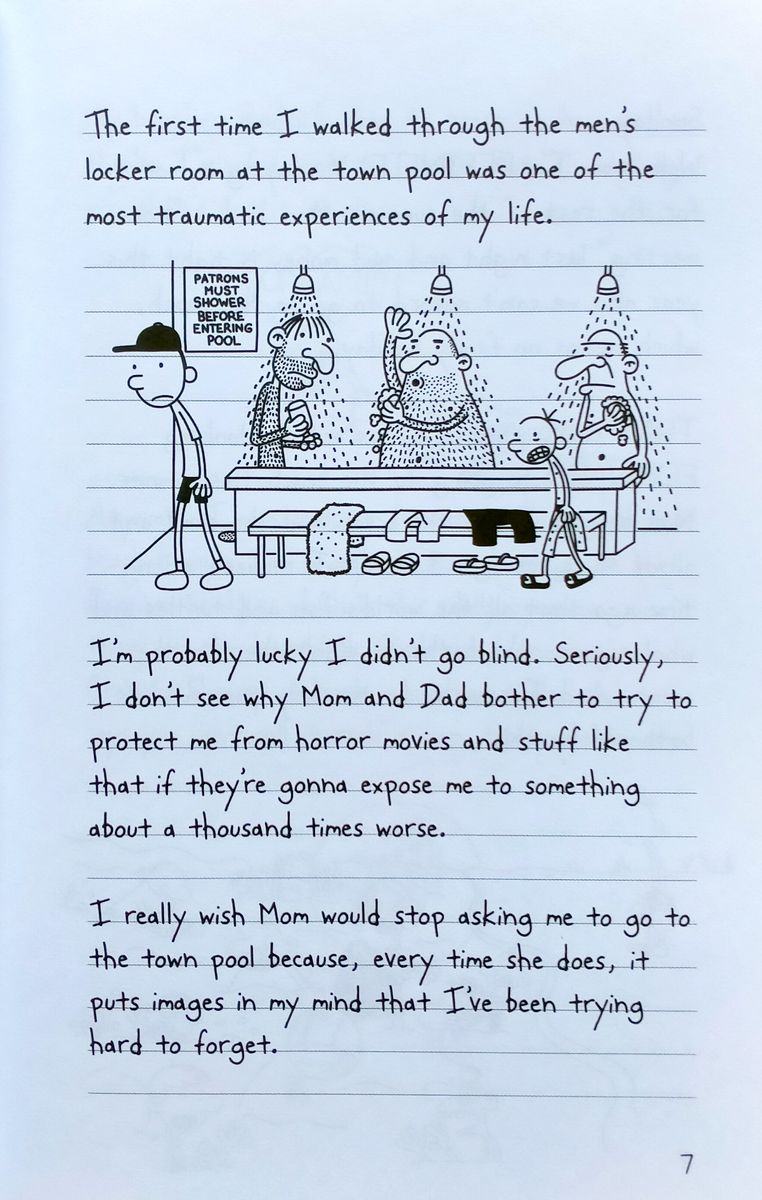 The first time I walked through the men's
locker room at the town pool was one of the
most traumatic experiences of my life.
PATRONS
MUST
SHOWER
BEFORE
ENTERING
POOL
I'm probably lucky I didn't go blind. Seriously,
I don't see why Mom and Dad bother to try to
protect me from horror movies and stuff like
that if they're gonna expose me to something
about a thousand times worse.
I really wish Mom would stop asking me to go to
the town pool because, every time she does, it
puts images in my mind that I've been trying
hard to forget.
7